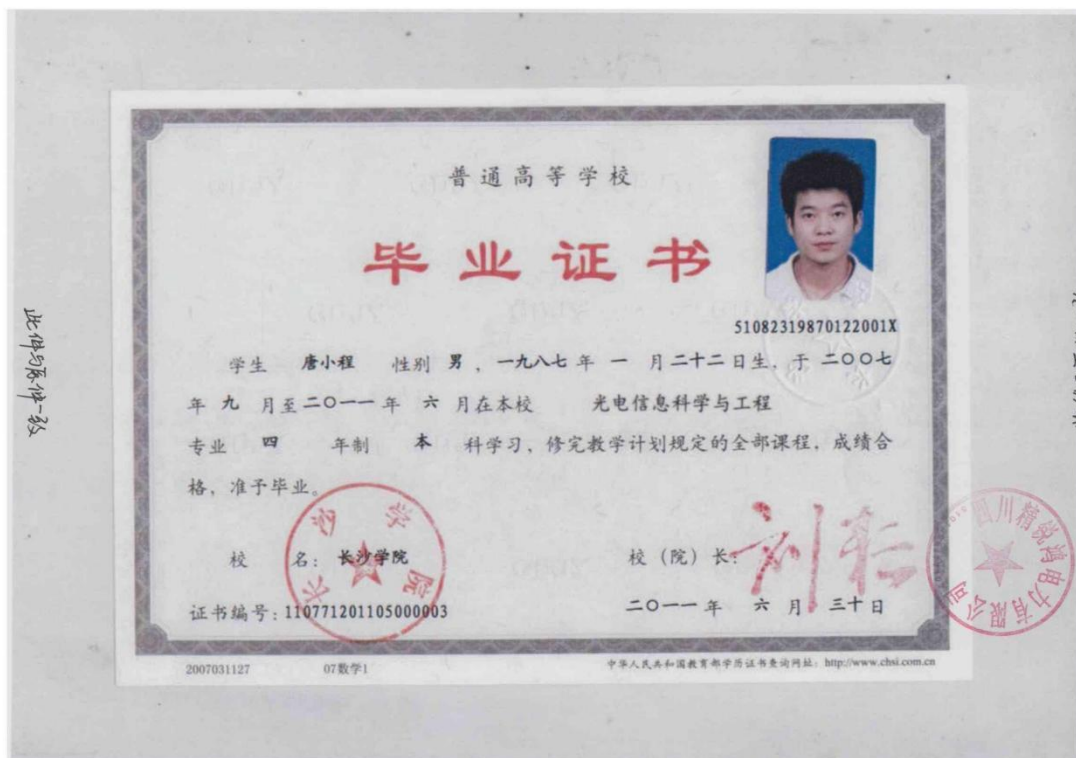 普通高等学校
毕业证书
51082319870122001X
学生 唐小程 性别 男 ，一九八七 年 一 月 二十二 日生，于 二〇〇七
年 九 月至 二〇一一 年 六 月在本校 光电信息科学与工程
专业 四 年制 本 科学习，修完教学计划规定的全部课程，成绩合
格，准予毕业。
校 名：长沙学院
校（院）长：
证书编号：110771201105000003
二〇一一 年 六 月 三十 日
2007031127 07数学1 中华人民共和国教育部学历证书查询网址：http://www.chsi.com.cn
此件与原件一致
长沙学院